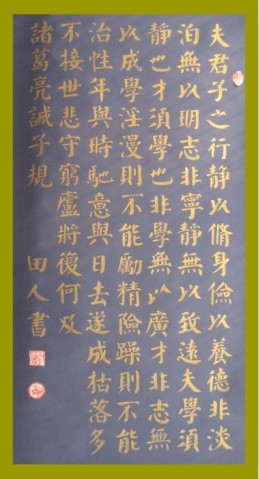 夫君子之行靜以脩身儉以養德非淡
泊無以明志非寧靜無以致遠夫學須
靜也才須學也非學無以廣才非志無
以成學淫漫則不能勵精險躁則不能
治性年與時馳意與日去遂成枯落多
不接世悲守窮盧將復何及
諸葛亮誡子規 田人書